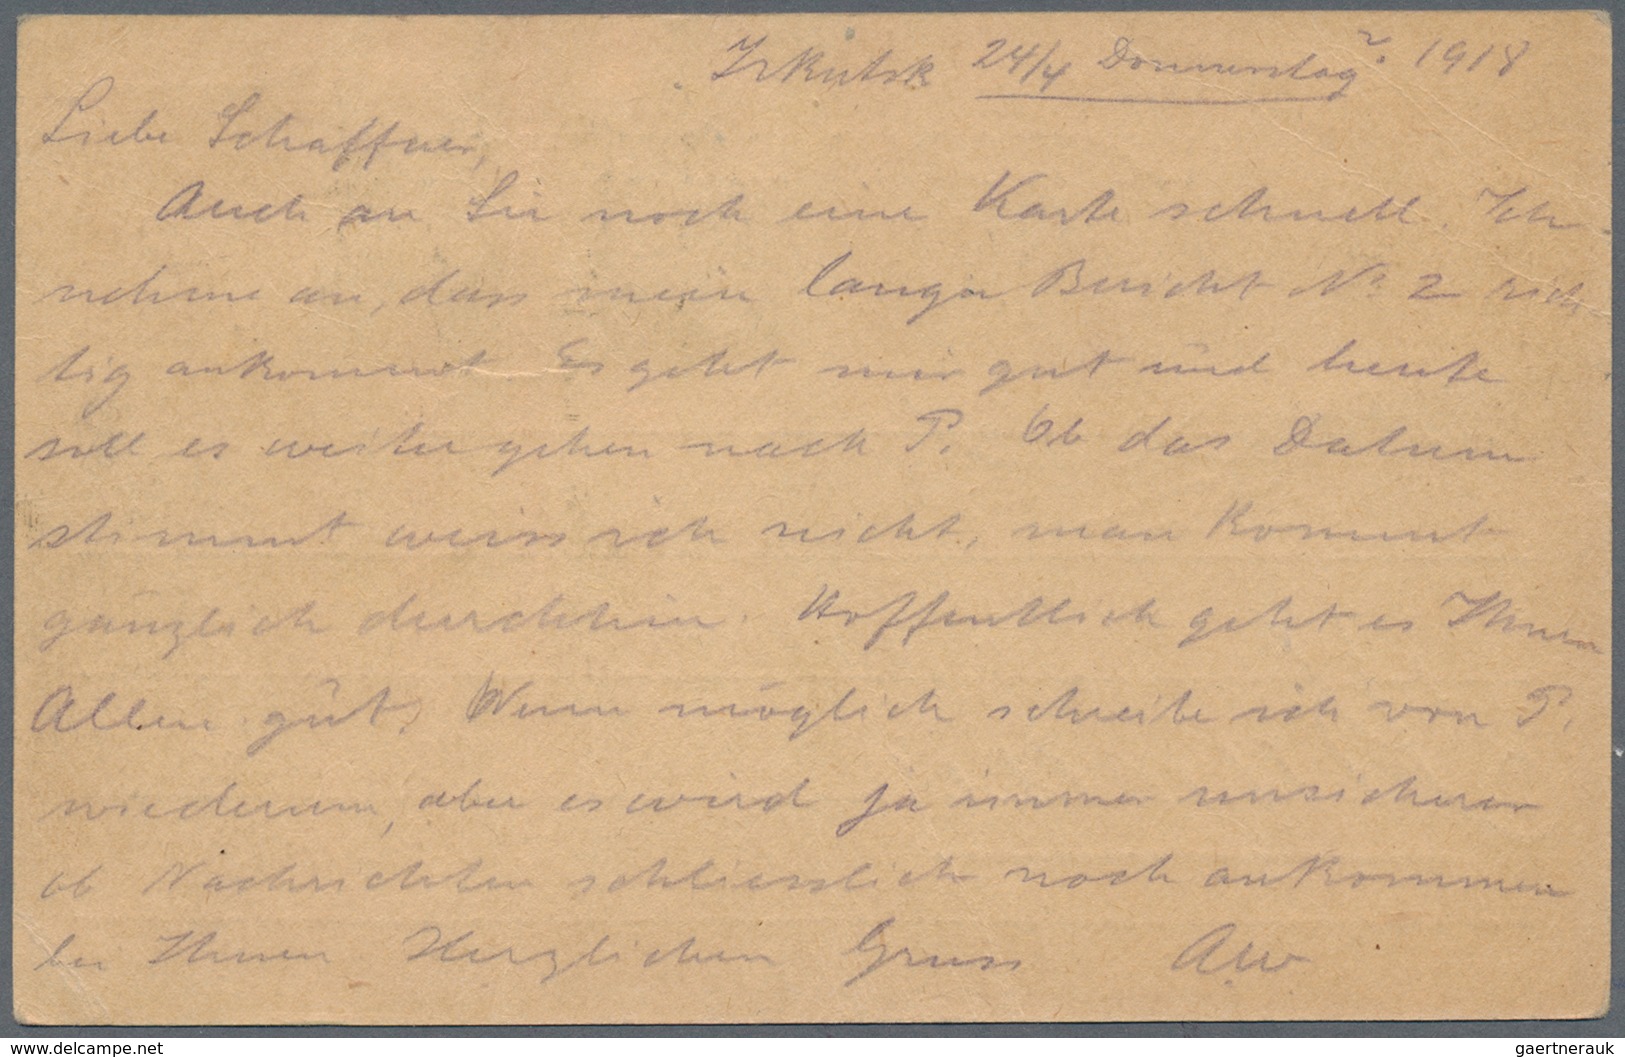 Irkutsk 24/4 Donnerstag? 1918
Liebe Schaffner,
Auch an Sie noch eine Karte schnell. Ich
nehme an, dass mein langer Bericht No 2 rich-
tig ankommt. Es geht mir gut und heute
soll es weiter gehen nach P. Ob das Datum
stimmt weiss ich nicht, man kommt
gänzlich durchhin. Hoffentlich geht es Ihnen
Allen gut, Wenn möglich schreibe ich von P.
wiederum, aber es wird ja immer unsicherer
ob Nachrichten schliesslich noch ankommen
bei Ihnen Herzlichen Gruss AW
© www.delcampe.net
gaertnerauk